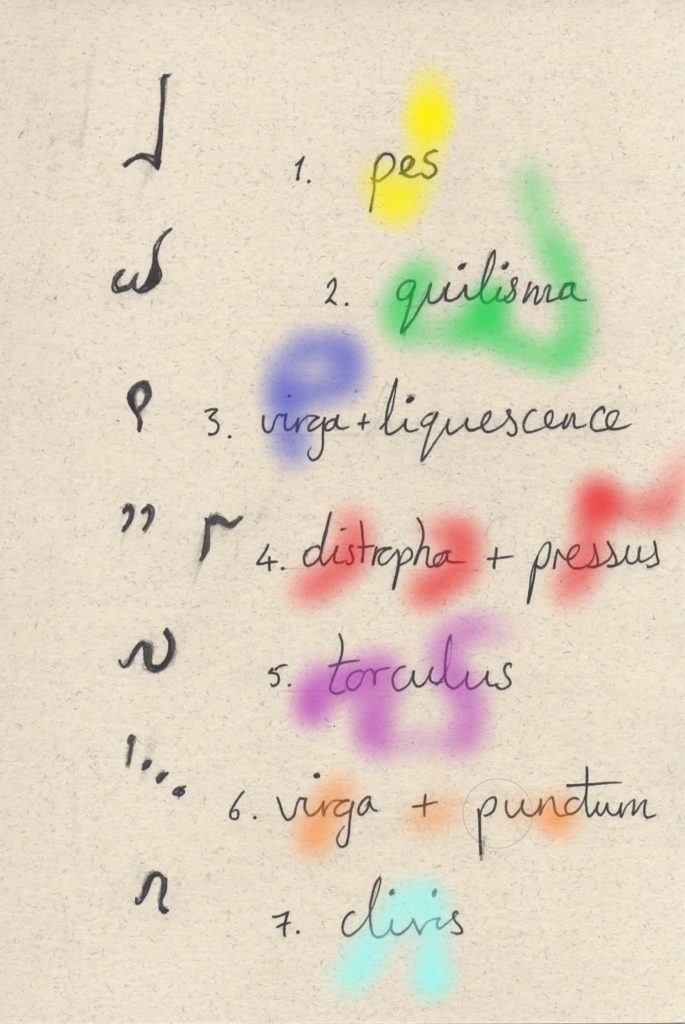 1. pes
2. quilisma
3. virga + liquescence
4. distropha + pressus
5. torculus
6. virga + punctum
7. clivis